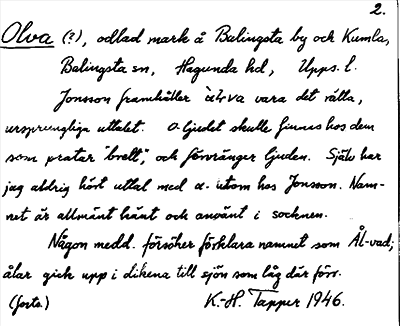 2.
Olva (?), odlad mark å Balingsta by och Kumla,
Balingsta sn, Hagunda hd, Upps. l.
Jonsson framhåller àlva vara det rätta,
ursprungliga uttalet. a-ljudet skulle finnas hos dem
som pratar "brett", och förvränger ljuden. Själv har
jag aldrig hört uttal med a- utom hos Jonsson. Nam-
net är allmänt känt och använt i socknen.
Någon medd. försöker förklara namnet som Ål-vad;
ålar gick upp i dikena till sjön som låg där förr.
(forts.) K.-H. Tapper 1946.